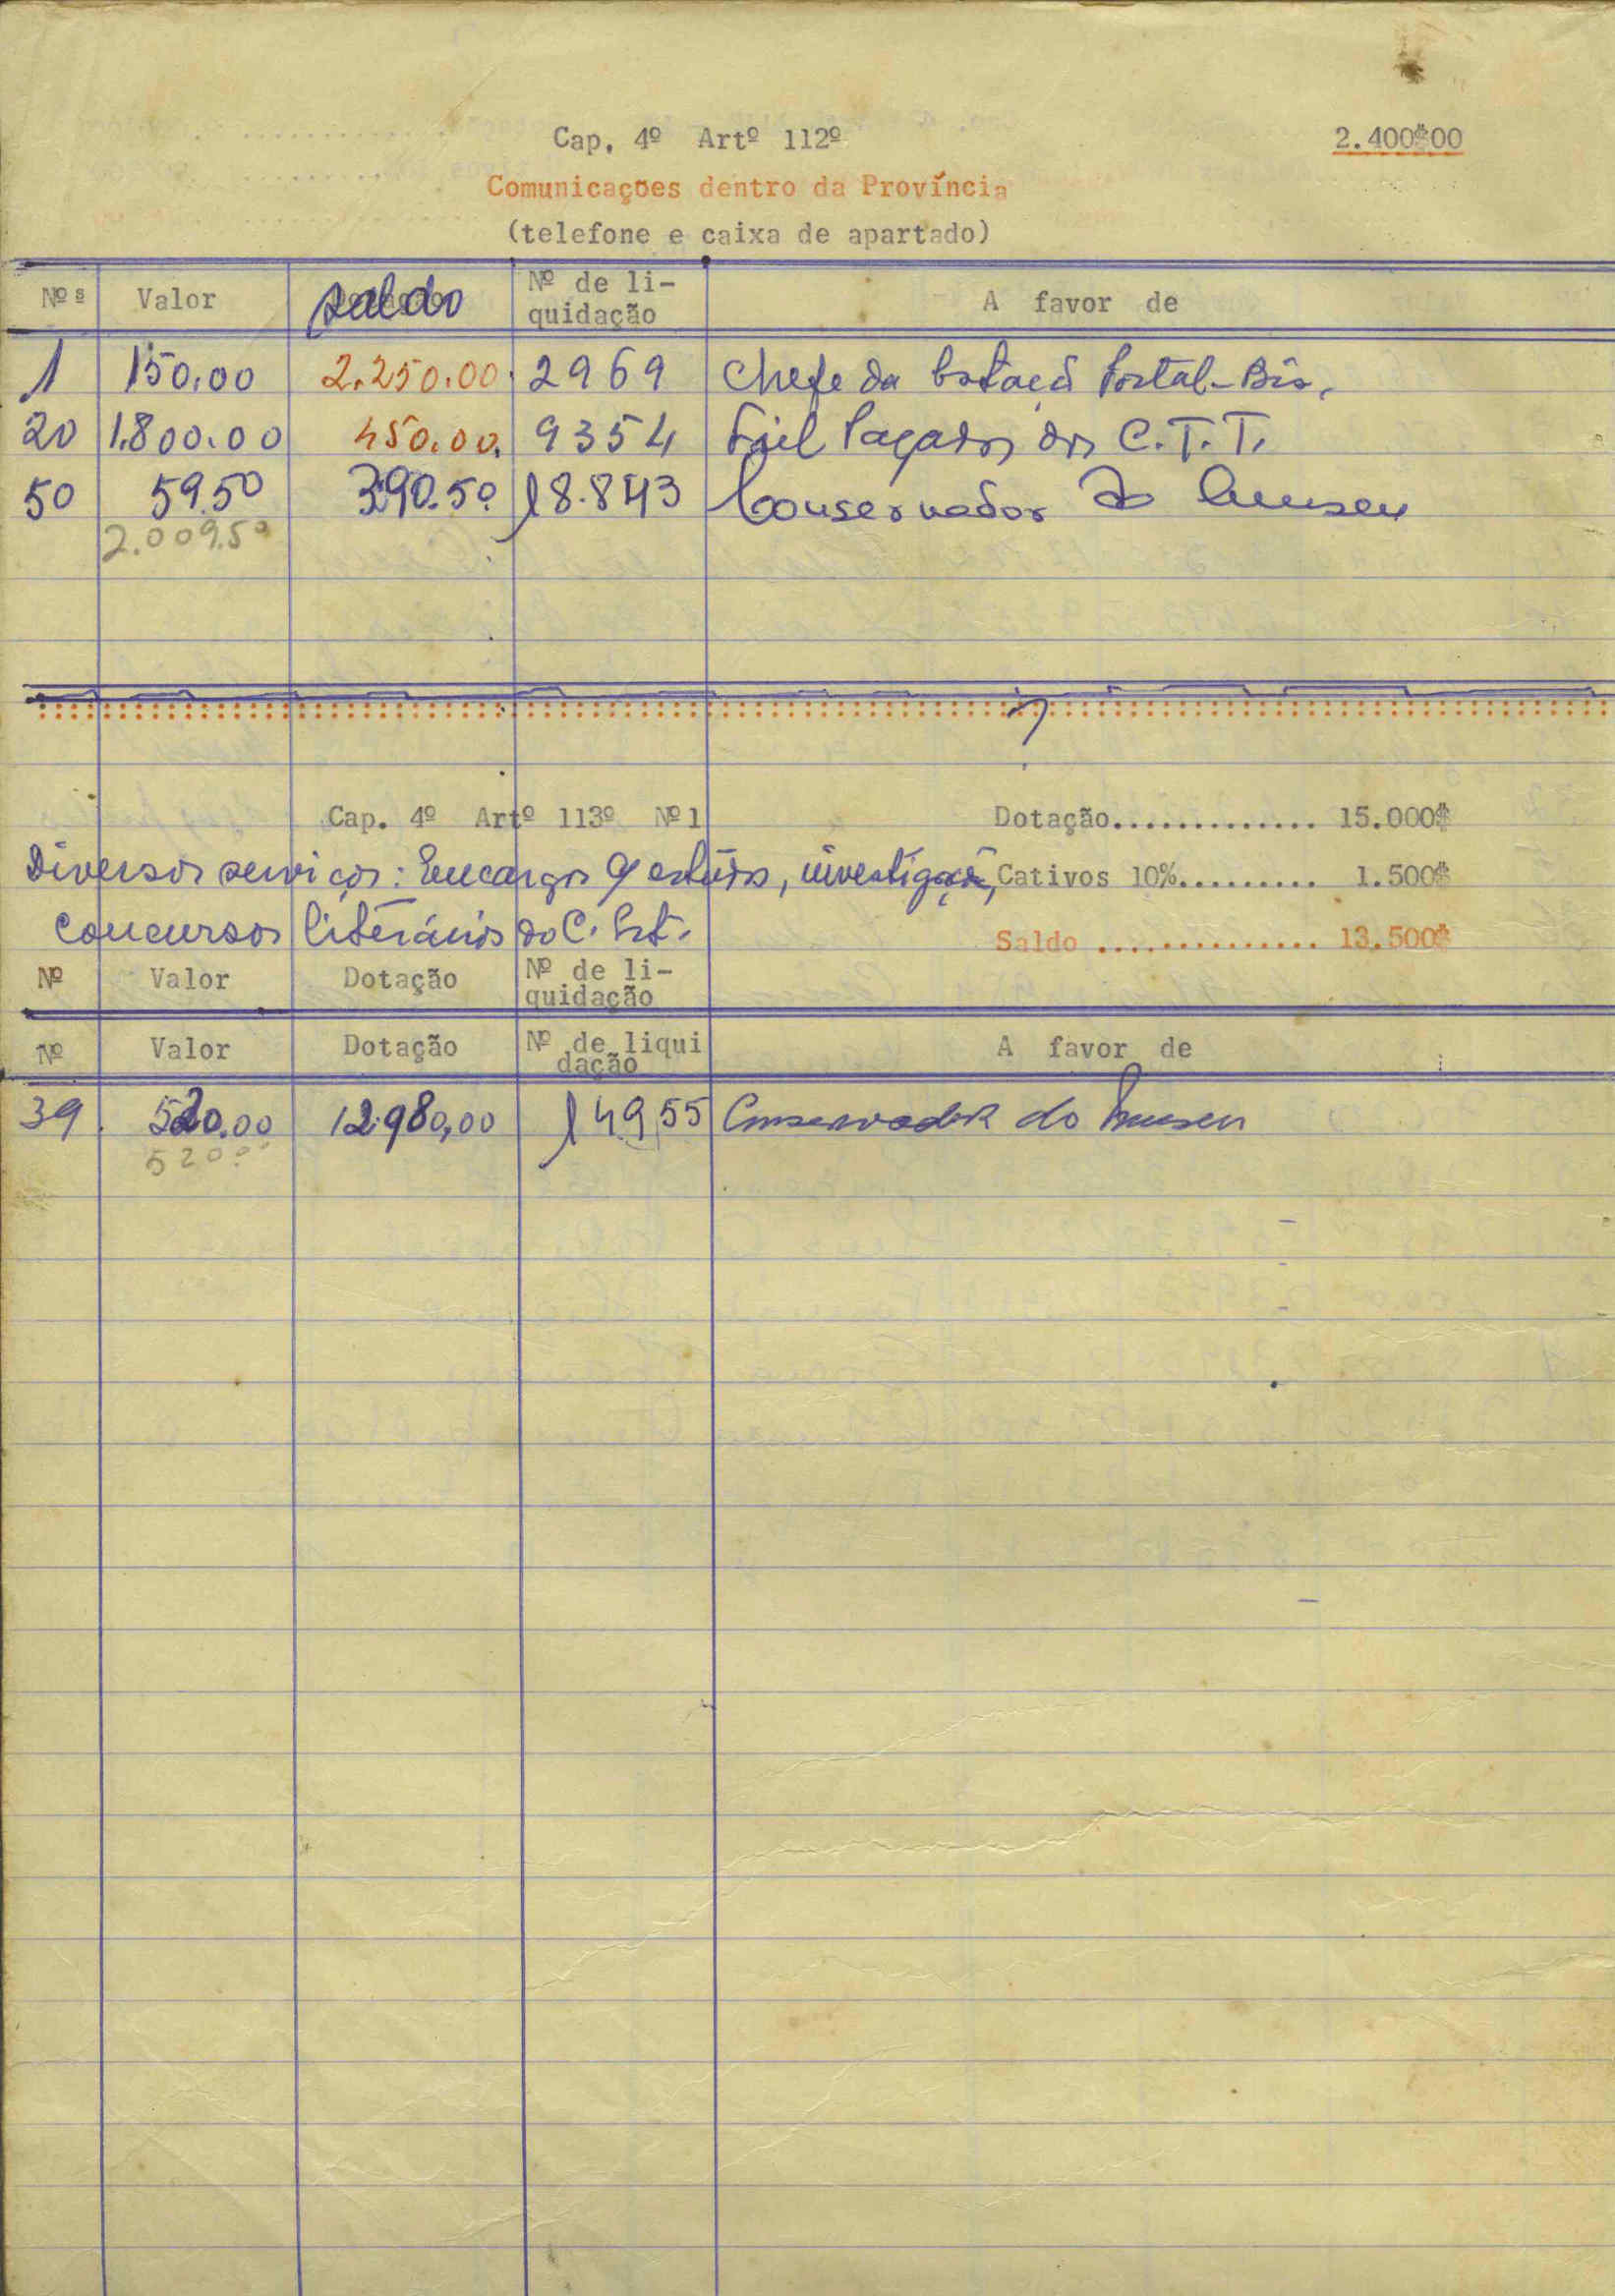 Cap. 4º Artº 112º 2.400$00
Comunicações dentro da Província
(telefone e caixa de apartado)
Nºs Valor saldo Nº de li-
quidação A favor de
1 150.00 2.250.00 2969 Chefe da Estação Postal-Bis.
20 1.800.00 450.00. 9354 Fiel Pagador dos C.T.T.
50 59.50 390.50 18.843 Conservador do Museu
2.009.50
Cap. 4º Artº 113º Nº1 Dotação............. 15.000$
Diversos serviços: Encargos estudos, investigação, Cativos 10%......... 1.500$
concursos literários do C. Est. Saldo .............. 13.500$
Nº Valor Dotação Nº de li-
quidação
Nº Valor Dotação Nº de liqui
dação A favor de
39 520.00 12.980,00 14955 Conservador do Museu
520.00